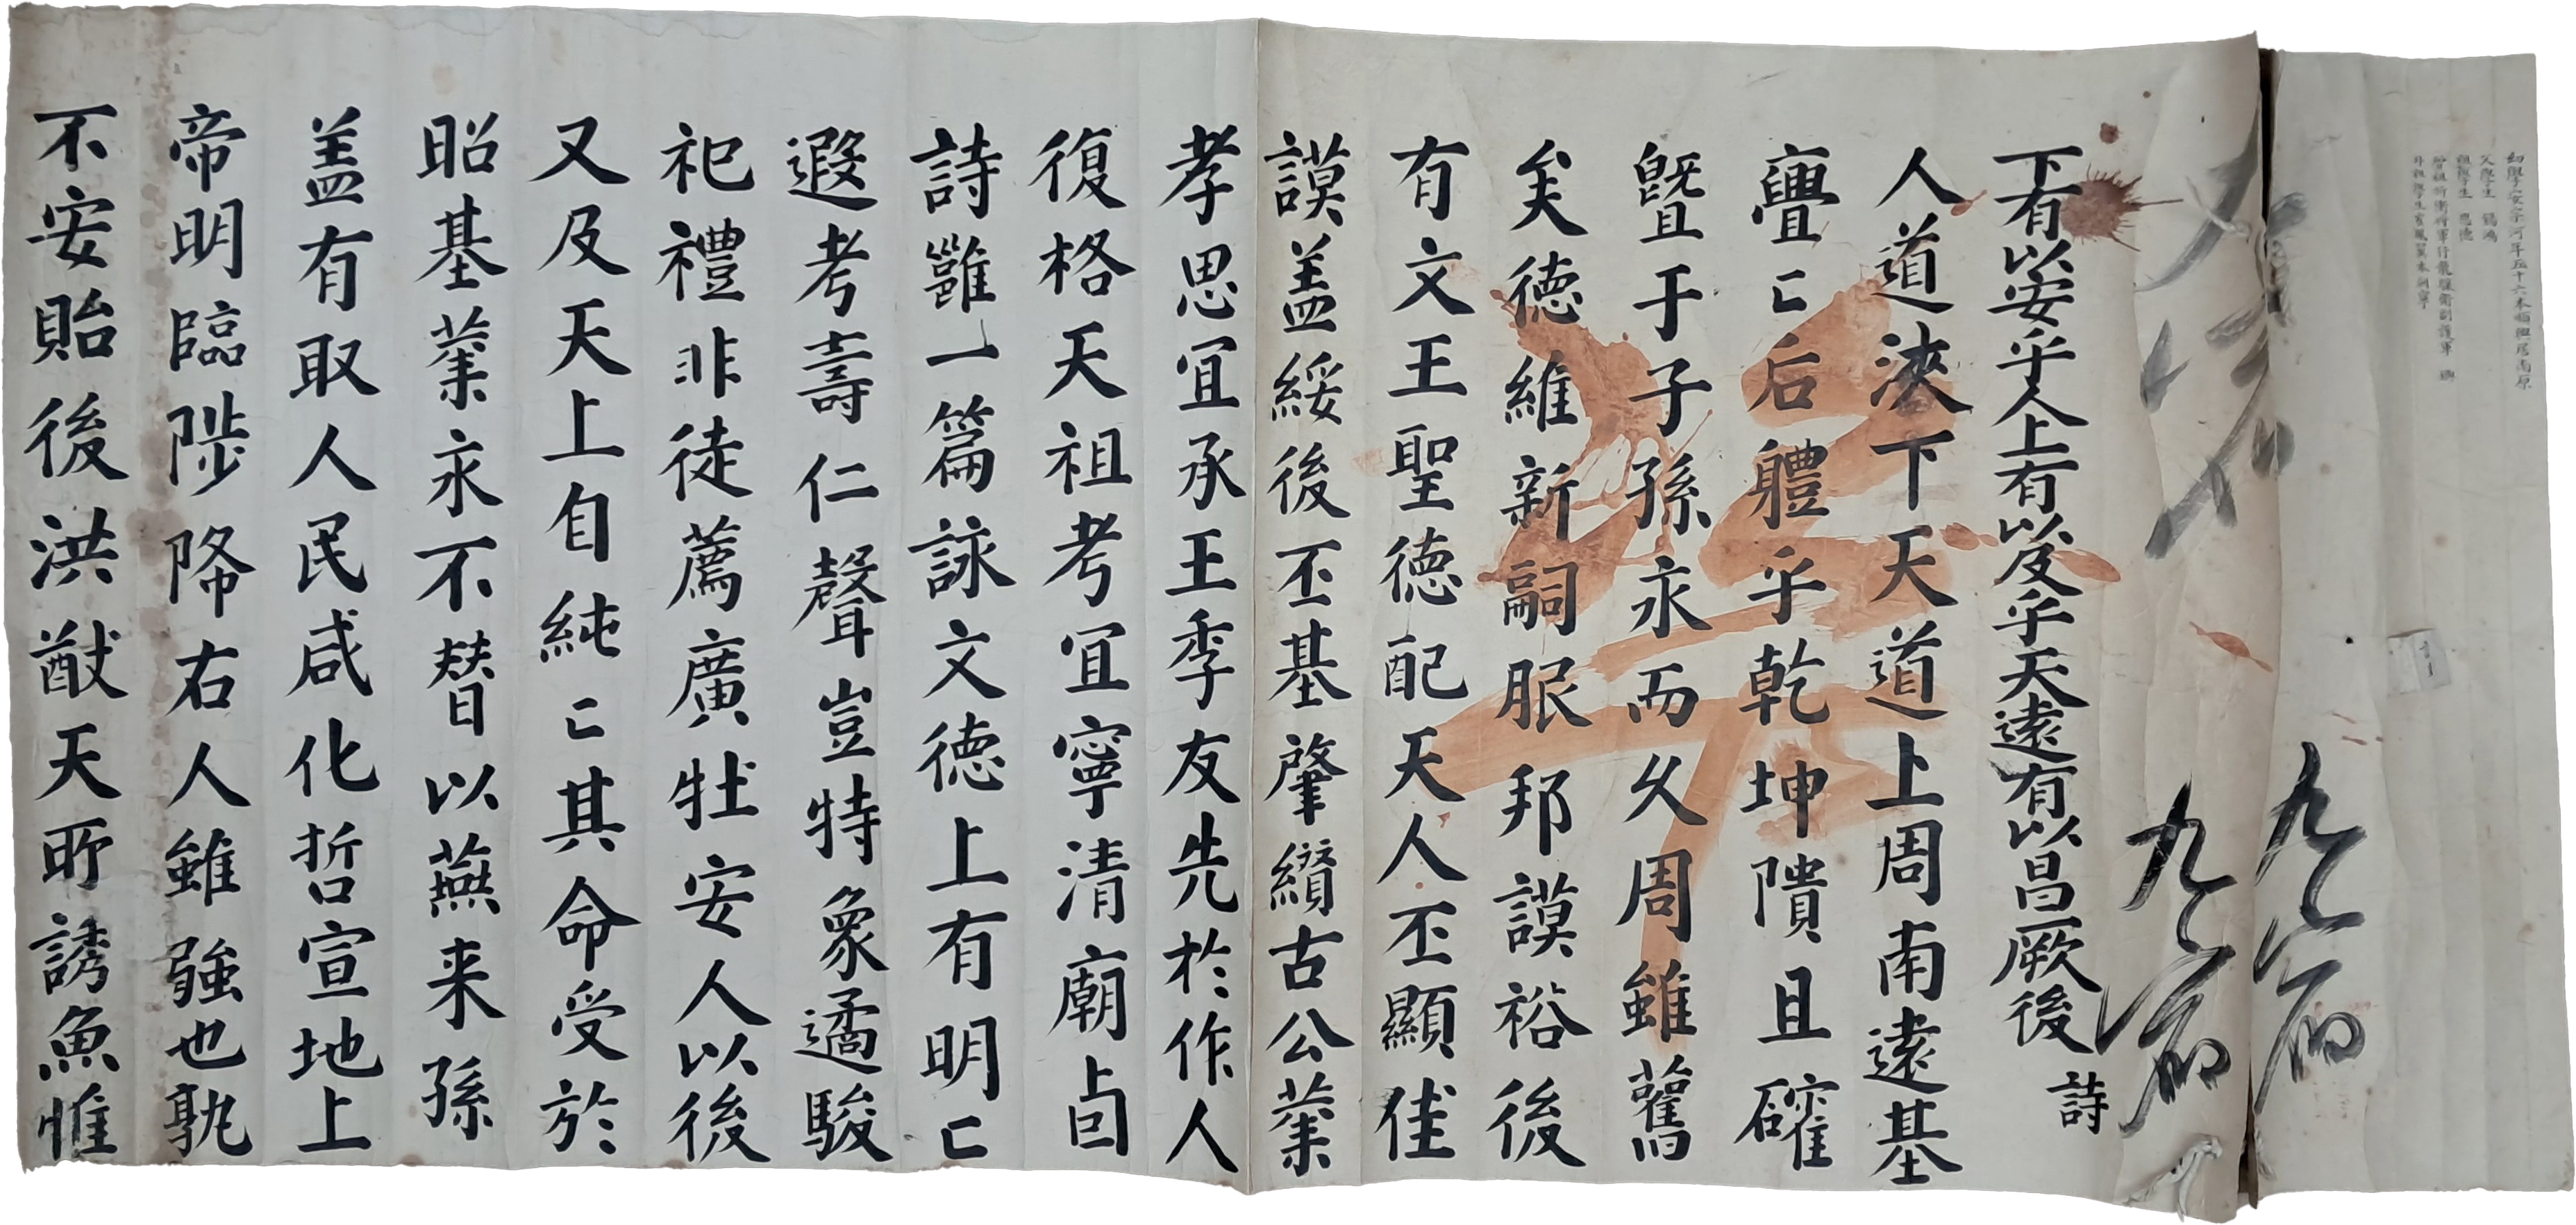 幼學安宗河年五十六本順興居南原
父學生 錫鴻
祖學生 應德
曾祖折衝將軍行龍驤衛副護軍
外祖學生
九
下有以安乎人上有以及乎天遠有以昌厥後 詩
人道浹下天道上周南遠基
亹〻后軆乎乾坤隤且確
曁于子孫永而久周雖舊
矣德維新嗣服邦謨裕後
有文王聖德配天人丕顯佳
謨盖綏後丕基肇纘古公業
孝思宜承王季友先於作人
復格天祖考宜寧清廟卣
詩雝一篇詠文德上有明〻
遐考壽仁聲豈特象遹駿
祀禮非徒薦廣牡安人以後
又及天上自純〻其命受於
昭基業永不替以燕来孫
盖有取人民咸化哲宣地上
帝明臨陟降右人雖強也孰
不安貽後洪猷天所誘魚惟